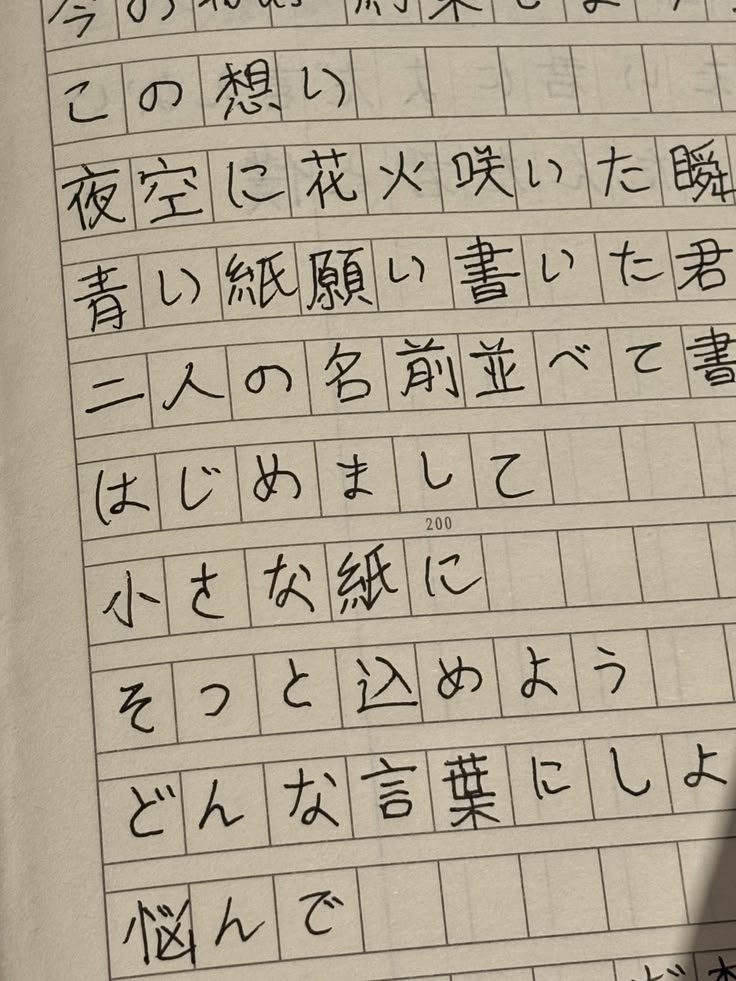 この想い
夜空に花火咲いた瞬
青い紙願い書いた君
二人の名前並べて書
はじめまして
200
小さな紙に
そっと込めよう
どんな言葉にしよ
悩んで